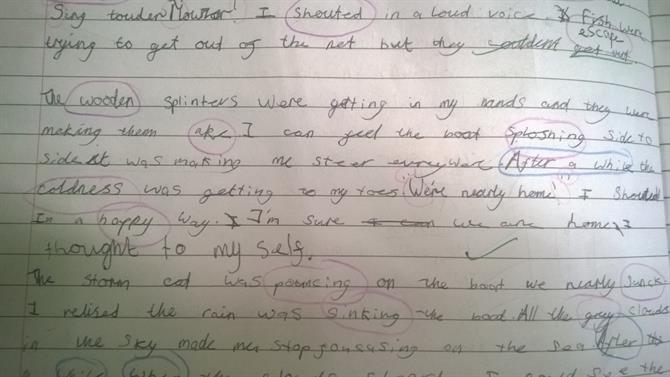 Sing louder Mowzer! I shouted in a loud voice. Fish were
escape
trying to get out of the net but they couldent get out.
The wooden splinters were getting in my hands and they were
making them ake I can feel the boat sploshing side to
side it was making me steer everywere. After a while the
coldness was getting to my toes "We're nearly home" I shouted
In a happy way. I I'm sure we are home, I
thought to my self.
The storm cat was pouncing on the boat we nearly sunck
I relised the rain was sinking the boat. All the grey clouds
in the sky made me stop foucusing on the sea After
a while When the I could see the